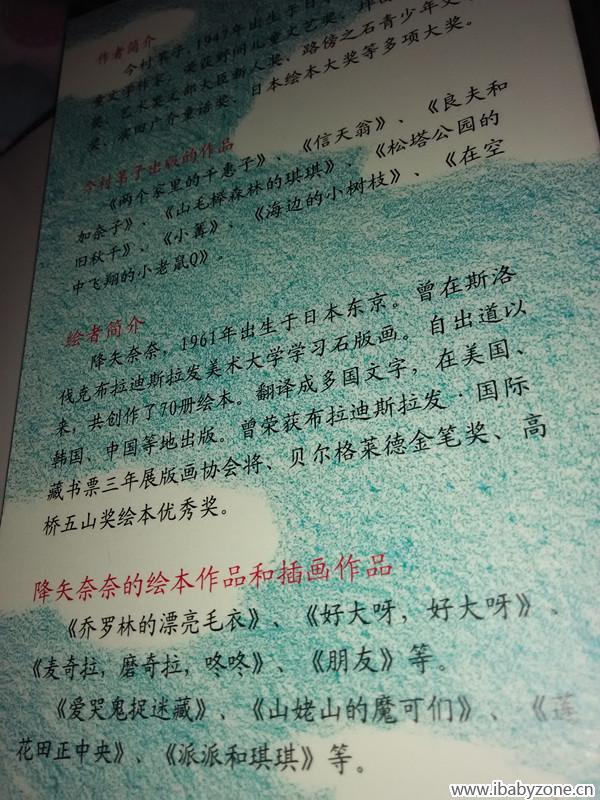 作者简介
今村苇子，1947年出生于日本
童文学作家。荣获野间儿童文艺奖、坪田
奖、艺术奖文部大臣新人奖、路傍之石青少年文
奖、滨田广介童话奖、日本绘本大奖等多项大奖。
今村苇子出版的作品
《两个家里的千惠子》、《信天翁》、《良夫和
加奈子》、《山毛榉森林的琪琪》、《松塔公园的
旧秋千》、《小篝》、《海边的小树枝》、《在空
中飞翔的小老鼠Q》。
绘者简介
降矢奈奈，1961年出生于日本东京。曾在斯洛
伐克布拉迪斯拉发美术大学学习石版画。自出道以
来，共创作了70册绘本。翻译成多国文字，在美国、
韩国、中国等地出版。曾荣获布拉迪斯拉发·国际
藏书票三年展版画协会将、贝尔格莱德金笔奖、高
桥五山奖绘本优秀奖。
降矢奈奈的绘本作品和插画作品
《乔罗林的漂亮毛衣》、《好大呀，好大呀》、
《麦奇拉，磨奇拉，咚咚》、《朋友》等。
《爱哭鬼捉迷藏》、《山姥山的魔可们》、《莲
花田正中央》、《派派和琪琪》等。
www.ibabyzone.cn